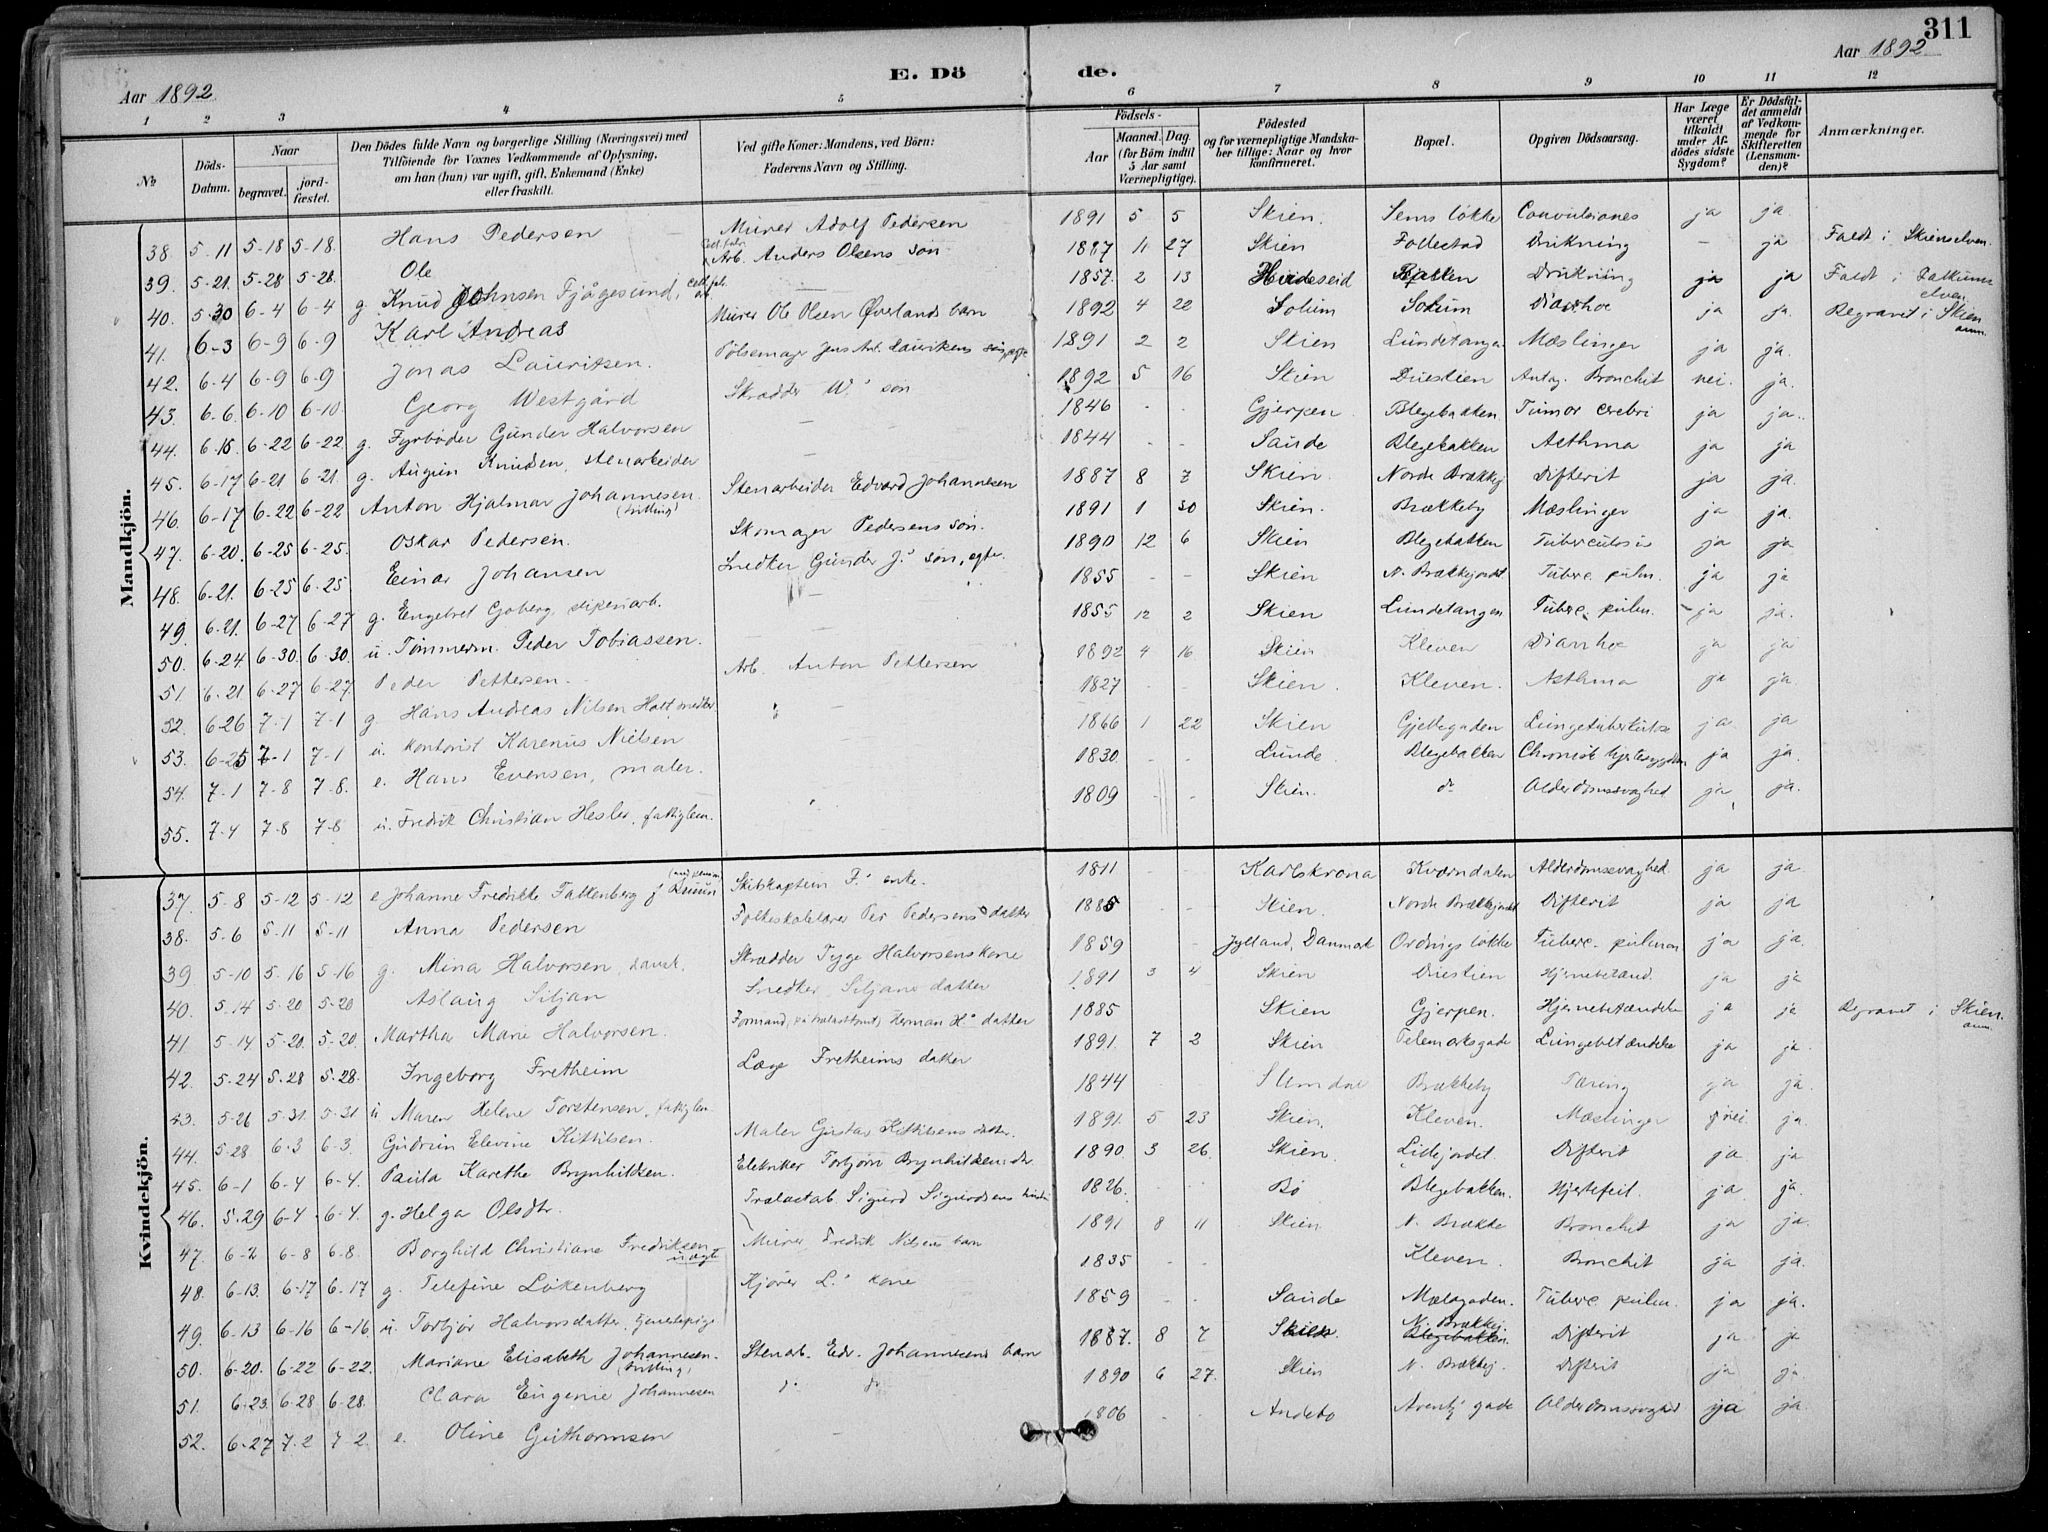 311
Aar 1892
E. Dö
de.
Aar 1892
1 2 3 4 5 6 7 8 9 10 11 12
№
Döds-Datum.
Naar
begravet.
jord-fæstet.
Den Dödes fulde Navn og borgerlige Stilling (Næringsvei) med
Tilföiende for Voxnes Vedkommende af Oplysning,
om han (hun) var ugift, gift, Enkemand (Enke)
eller fraskilt.
Ved gifte Koner: Mandens, ved Börn:
Faderens Navn og Stilling.
Födsels-
Aar
Maaned. Dag.
(for Börn indtil
5 Aar samt
Værnepligtige).
Födested
og for værnepligtige Mandska-
ber tillige: Naar og hvor
konfirmeret.
Bopæl.
Opgiven Dödsaarsag.
Har Læge
været
tilkaldt
under Af-
dödes sidste
Sygdom?
Er Dödsfal-
det anmeldt
af Vedkom-
mende for
Skifteretten
(Lensman-
den)?
Anmærkninger.
Mandkjön.
38. 5-11 5-18 5-18. Hans Pedersen Murer Adolf Pedersen 1891 5 5 Skien. Sems løkke Convulsiones ja ja
39. 5-21. 5-28 5-28. Ole Arb. Anders Olsens søn 1887 11 27 Skien Follestad Drukning - ja Faldt i Skienselven.
40. 5-30 6-4 6-4 g. Knud Johnsen Fjågesund, 1857. 2 13 Hvideseid Bakken Drukning ja ja Faldt i elven.
41. 6-3 6-9 6-9 Karl Andreas Murer Ole Olsen Øverlands barn 1892 4 22 Solum Solum Diarrhoe ja ja. Begravet i Skien anm.
42. 6-4 6-9 6-9 Jonas Lauritsen. Pølsemager Jens Ant. Lauritsens søn, egte 1891 2 2 Skien Lundetangen Mæslinger ja ja.
43. 6-6. 6-10 6-10. Georg Westgård Skrædder W.s søn 1892 5 16 Skien Duestien Antag. Bronchit nei. ja.
44. 6-18 6-22 6-22. g. Fyrbøder Gunder Halvorsen — 1846 - - Gjerpen Blegebakken. Tumor cerebri ja ja.
45. 6-17 6-21 6-21. g. Augun Knudsen, stenarbeider — 1844 - - Saude Blegebakken Asthma ja ja
46. 6-17 6-22 6-22 Anton Hjalmar Johannesen. (tvilling) Stenarbeider Edvard Johannesen 1887 8 7 Skien. Nordr Brækkej Difterit ja ja.
47. 6-20. 6-25 6-25. Oskar Pedersen. Skomager Pedersens søn. 1891 1 30 Skien. Brækkeby Mæslinger ja ja.
48. 6-21. 6-25 6-25 Einar Johansen Snedker Gunder J.s søn, egte. 1890 12 6 Skien Blegebakken Tuberculosis ja ja
49. 6-21. 6-27 6-27 g. Engebret Goberg, sliperiarb. — 1855 - - Skien N. Brækkejordet Tuberc. pulm. ja ja
50. 6-24 6-30. 6-30. u. Tømmerm. Peder Tobiassen. — 1855 12 2 Skien Lundetangen Tuberc. pulm. ja ja.
51. 6-21 6-27 6-27 Peder Pettersen. Arb. Anton Pettersen 1892 4 16 Skien Kleven Diarrhoe ja ja
52. 6-26 7-1 7-1 g. Hans Andreas Nilsen Holt, snedker — 1827 - - Skien. Kleven. Asthma ja ja.
53. 6-25 7-1 7-1 u. Kontorist Karenus Nielsen — 1866 1 22 Skien Gjetlegaden Lungetuberkulose ja ja
54. 7-1 7-8 7-8. e. Hans Evensen, maler. — 1830. - - Lunde. Blegebakken Chronisk hjertesygdom ja ja.
55. 7-4 7-8 7-8 u. Fredrik Christian Hesler, fattiglem. 1809 - - Skien. do Alderdomssvaghed ja ja.
Kvindekjön.
37. 5-8 5-12 5-12 e Johanne Fredrikke Falkenberg f. Skibskaptein F.s enke. 1811 - - Karlskrona Kværndalen Alderdomssvaghed ja ja.
38. 5-6 5-11 5-11 Anna Pedersen Folkeskolelærer Per Pedersens datter 1885 - - Skien. Nordr Brækkejordet Difterit ja ja
39 5-10 5-16 5-16 g. Mina Halvorsen, dansk. Skrædder Tyge Halvorsens kone 1859 - Jylland, Danmark Ordrugs løkke Tuberc. pulmon ja ja.
40. 5-14 5-20 5-20 Aslaug Siljan Snedker Siljans datter 1891 3 4 Skien Duestien Hjernebetænd. ja ja
41. 5-14 5-20. 5-20. Martha Marie Halvorsen. Formand, på trælasttomt, Herman H.s datter 1885 Skien Gjerpen. Hjernebetændelse ja ja Begravet i Skien. anm.
42. 5-24 5-28 5-28. Ingeborg Fretheim Læge Fretheims datter 1891. 7 2 Skien Telemarksgade Lungebetændelse ja ja.
43. 5-26 5-31. 5-31 u. Maren Helene Torstensen, fattiglem. 1844 Brækkeby Tæring ja ja.
44. 5-28 6-3 6-3. Gudrun Elevine Kittilsen. Maler Gustav Kittilsens datter. 1891. 5 23 Skien. Kleven. Mæslinger nei. ja.
45. 6-1 6-4 6-4. Paula Karethe Brynhildsen. Elektriker Torbjørn Brynhildsens dr 1890. 3 26. Skien. Lillejordet. Difterit ja. ja
46. 5-29 6-4 6-4. g. Helga Olsdtr. Trælastab. Sigurd Sigurdsens hustru 1826. - - Bø Blegebakken. Hjertefeil. ja ja.
47. 6-2 6-8 6-8. Borghild Christiane Fredriksen uægte Murer Fredrik Nilsens barn 1891 8 11 Skien N. Brække Bronchit ja ja.
48. 6-13. 6-17 6-17 g. Telefine Løkenberg Kjører L.s kone 1835 - - Kleven. Bronchit ja ja.
49. 6-13 6-16 6-16 u. Torbjør Halvorsdatter, tjenestepige 1859 - - Saude Mælagaden. Tuberc. pulm. ja ja.
50. 6-20. 6-22 6-22. Mariane Elisabeth Johannesen. (tvilling) Stenarb. Edv. Johannesens barn 1887. 8 7 Skien. N. Brækkej. Blegebakken. Difterit ja ja
51. 6-23 6-28 6-28. Clara Eugenie Johannesen do do 1890 6 27. Skien N. Brækkej. Difterit ja ja.
52. 6-27 7-2 7-2. e. Oline Guthormsen — 1806 - - Andebo gade Alderdomssvaghed ja ja.